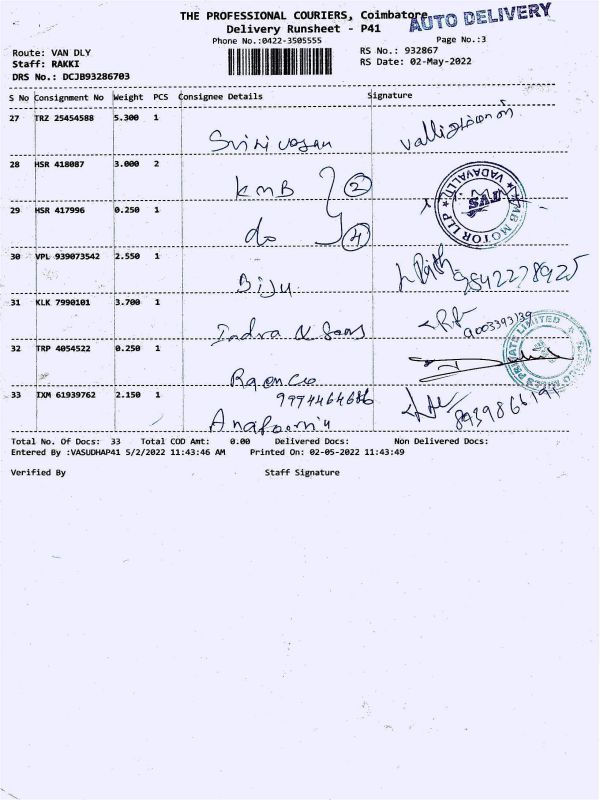 THE PROFESSIONAL COURIERS, Coimbatore
AUTO DELIVERY
Delivery Runsheet - P41
Phone No.:0422-3505555
Page No.:3
Route: VAN DLY
RS No.: 932867
Staff: RAKKI
RS Date: 02-May-2022
DRS No.: DCJB93286703
S No Consignment No Weight PCS Consignee Details Signature
27 TRZ 25454588 5.300 1
Srinivasan
28 HSR 418087 3.000 2
KMB 2
29 HSR 417996 0.250 1
do 4
MOTOR LLP VADAVALLI TVS
30 VPL 939073542 2.550 1
Biju
31 KLK 7990101 3.700 1
9003393139
Indra & Sons
32 TRP 4054522 0.250 1
PRIVATE LIMITED
33 IXM 61939762 2.150 1
9994464686
Total No. Of Docs: 33 Total COD Amt: 0.00 Delivered Docs: Non Delivered Docs:
Entered By :VASUDHAP41 5/2/2022 11:43:46 AM Printed On: 02-05-2022 11:43:49
Verified By Staff Signature